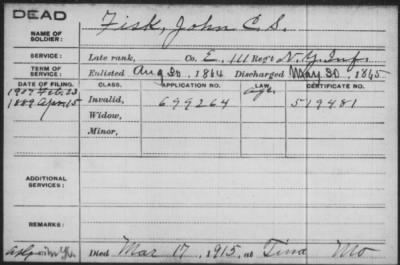 DEAD
NAME OF SOLDIER: Fisk, John C. S.
SERVICE: Late rank, Co. E, 111 Reg't N.Y. Inf.
TERM OF SERVICE: Enlisted Aug 30, 1864 Discharged May 30, 1865
DATE OF FILING. CLASS. APPLICATION NO. LAW. CERTIFICATE NO.
1907 Feb. 23 Age.
1889 Apr. 15 Invalid, 699264 519481
Widow,
Minor,
ADDITIONAL SERVICES:
REMARKS:
Died Mar 17, 1915, at Tina Mo